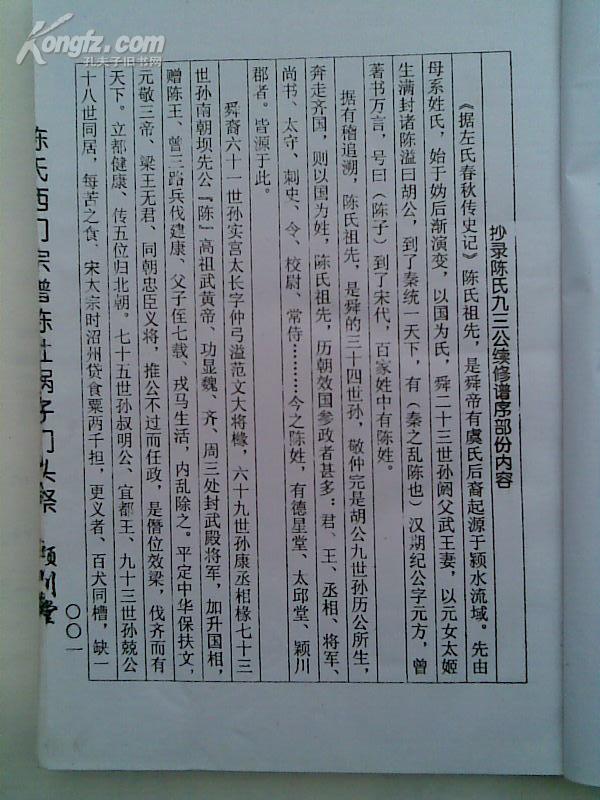 Kongfz.com
孔夫子旧书网
抄录陈氏九三公续修谱序部份内容
《据左氏春秋传史记》陈氏祖先，是舜帝有虞氏后裔起源于颍水流域。先由
母系姓氏，始于妫后渐演变，以国为氏，舜二十三世孙阏父武王妻，以元女太姬
生满封诸陈溢曰胡公，到了秦统一天下，有（秦之乱陈也）汉期纪公字元方，曾
著书万言，号曰（陈子）到了宋代，百家姓中有陈姓。
据有稽追溯，陈氏祖先，是舜的三十四世孙，敬仲完是胡公九世孙历公所生，
奔走齐国，则以国为姓，陈氏祖先，历朝效国参政者甚多：君、王、丞相、将军、
尚书、太守、刺史、令、校尉、常侍…………今之陈姓，有德星堂、太邱堂、颖川
郡者。皆源于此。
舜裔六十一世孙实宫太长字仲弓溢范文大将椽，六十九世孙康丞相椽七十三
世孙南朝坝先公『陈』高祖武黄帝、功显魏、齐、周三处封武殿将军，加升国相，
赠陈王、曾三路兵伐建康、父子侄七载、戎马生活，内乱除之。平定中华保扶文，
元敬三帝、梁王无君、同朝忠臣义将，推公不过而任政，是僭位效梁，伐齐而有
天下。立都健康、传五位归北朝。七十五世孙叔明公、宜都王、九十三世孙兢公
十八世同居，每苦之食、宋大宗时沼州贷食粟两千担，更义者、百犬同槽，缺一
陈氏西门宗谱陈灶锅子门头祭
颍川堂
〇〇一